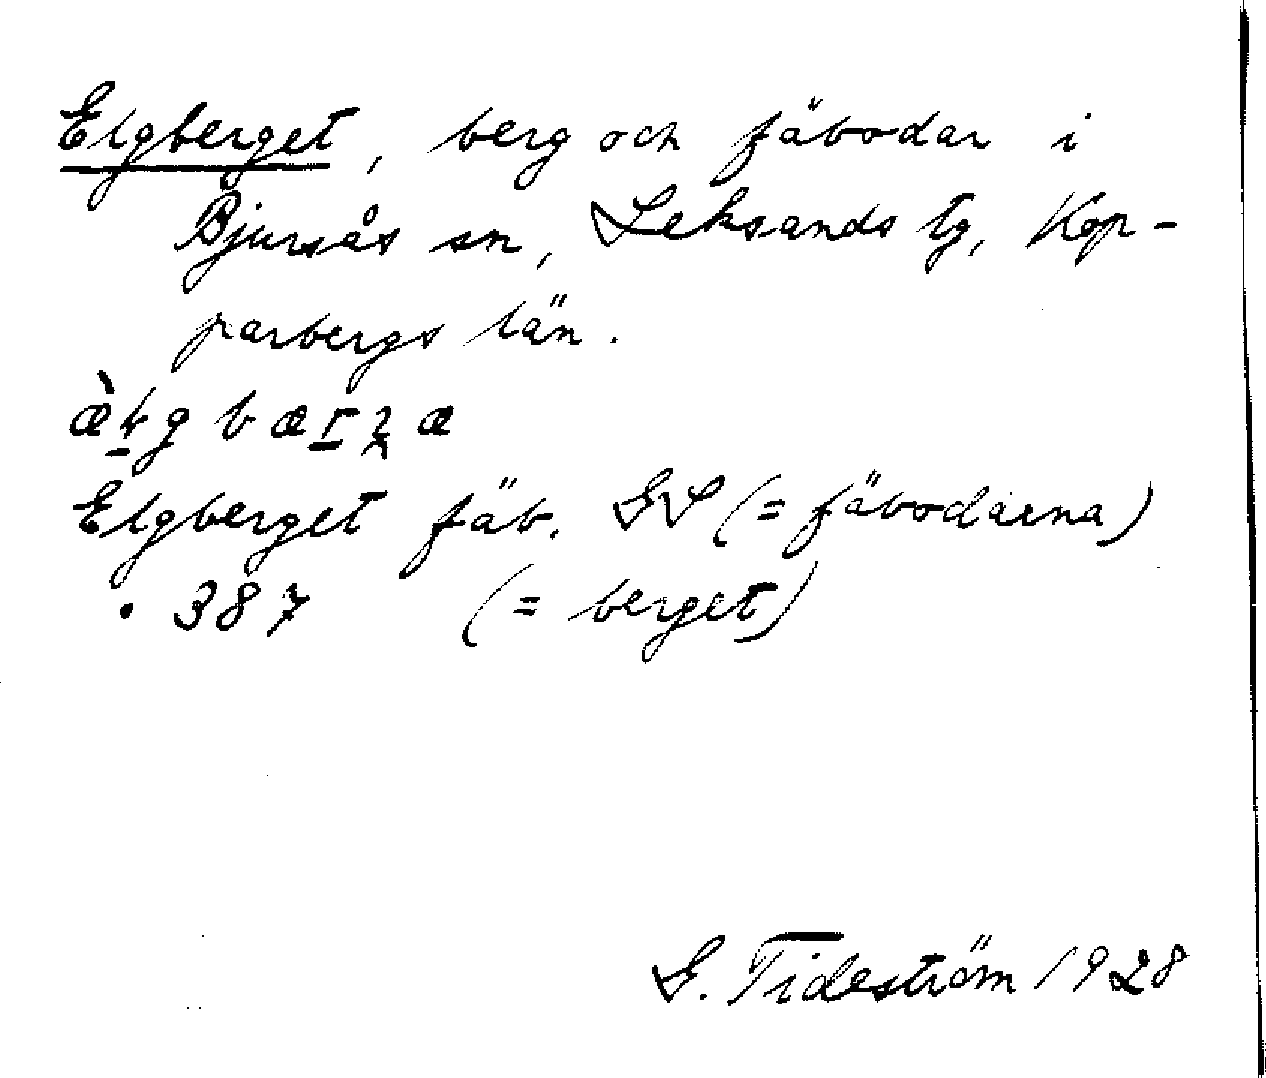 Elgberget, berg och fäbodar i
Bjursås sn, Leksands tg, Kop-
parbergs län.
Elgberget fäb. GS (= fäbodarna)
. 387 (= berget)
G. Tideström 1928